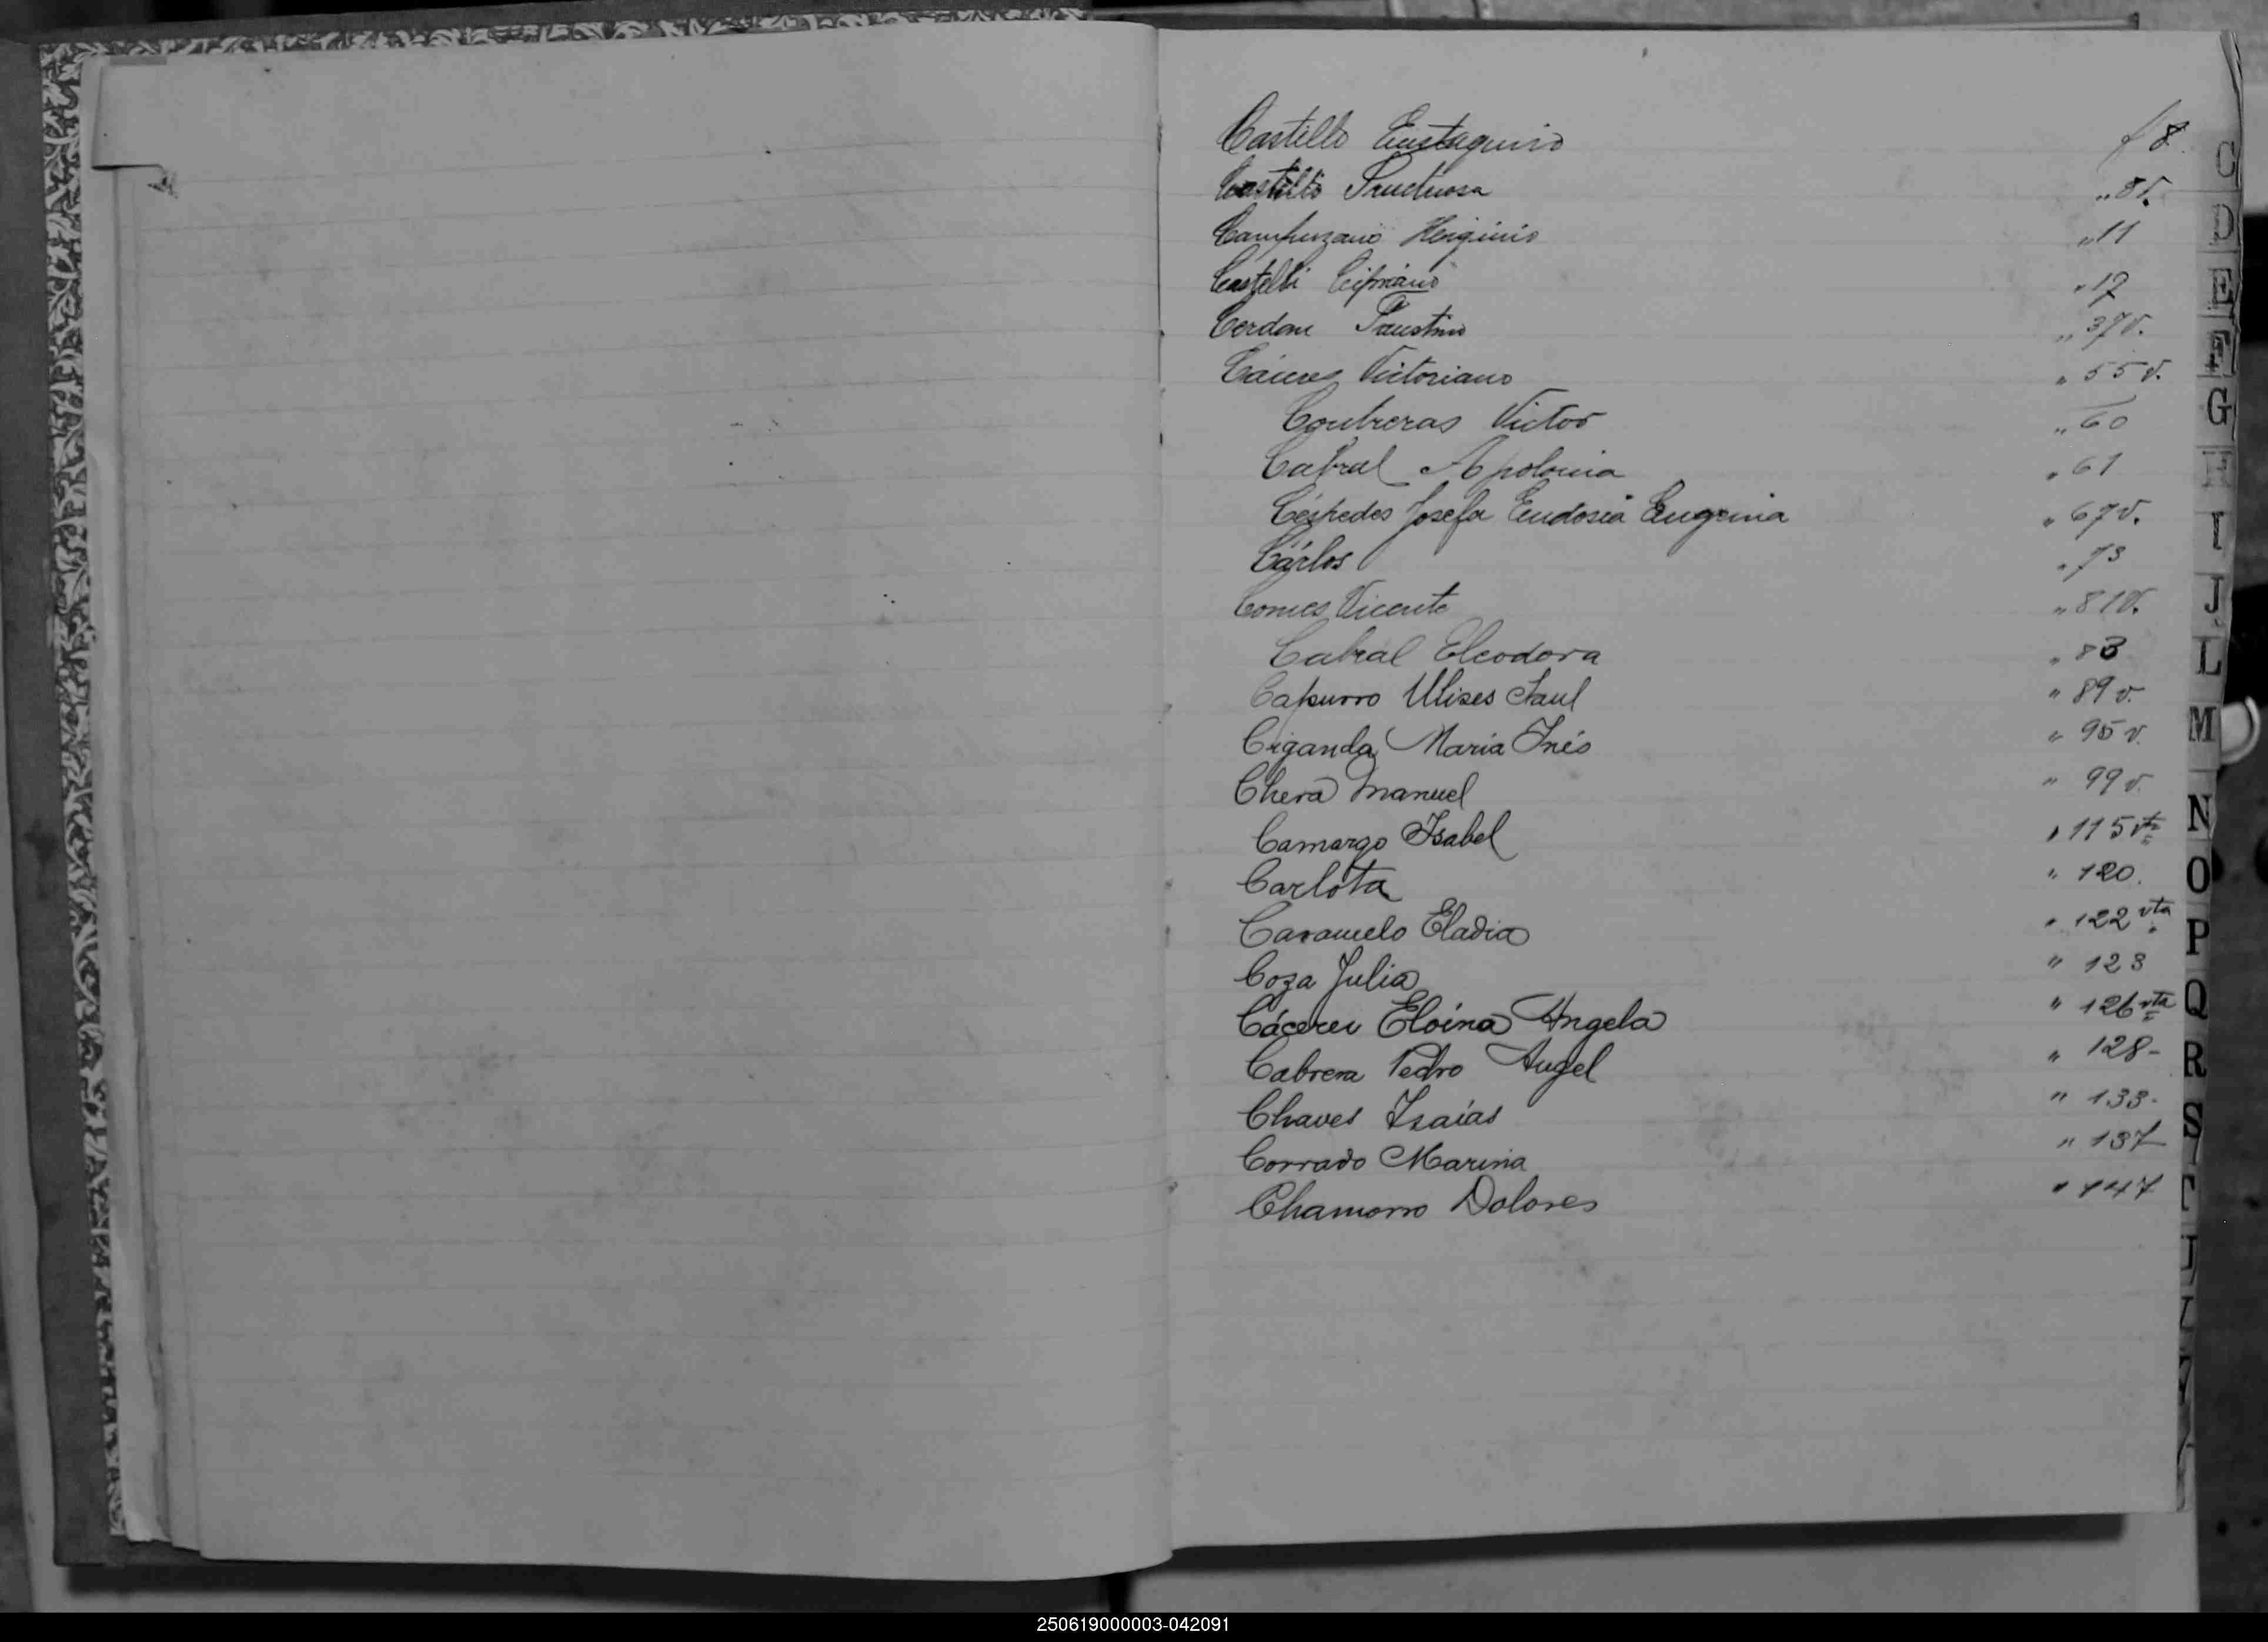 Castillo Eustaquio f 8
Castillo Fructuosa „ 8v.
Campuzano Herginio „ 11
Castelli Cipriano „ 17
Cerdan Faustino „ 37v.
Cáceres Victoriano „ 55v.
Contreras Victor „ 60
Cabral Apolonia „ 61
Céspedes Josefa Eudosia Eugenia „ 67v.
Cárlos „ 73
Comes Vicente „ 81v.
Cabral Eleodora „ 83
Capurro Ulises Saul „ 89 v.
Ciganda Maria Inés „ 95 v.
Chera Manuel „ 99 v.
Camargo Isabel „ 115 vta
Carlota „ 120.
Caramelo Eladia „ 122 vta
Coza Julia „ 123
Cáceres Eloina Angela „ 126 vta
Cabrera Pedro Angel „ 128-
Chaves Isaías „ 133-
Corrado Marina „ 137
Chamorro Dolores „ 147
C
D
E
F
G
H
I
J
L
M
N
O
P
Q
R
S
T
U
V
250619000003-042091